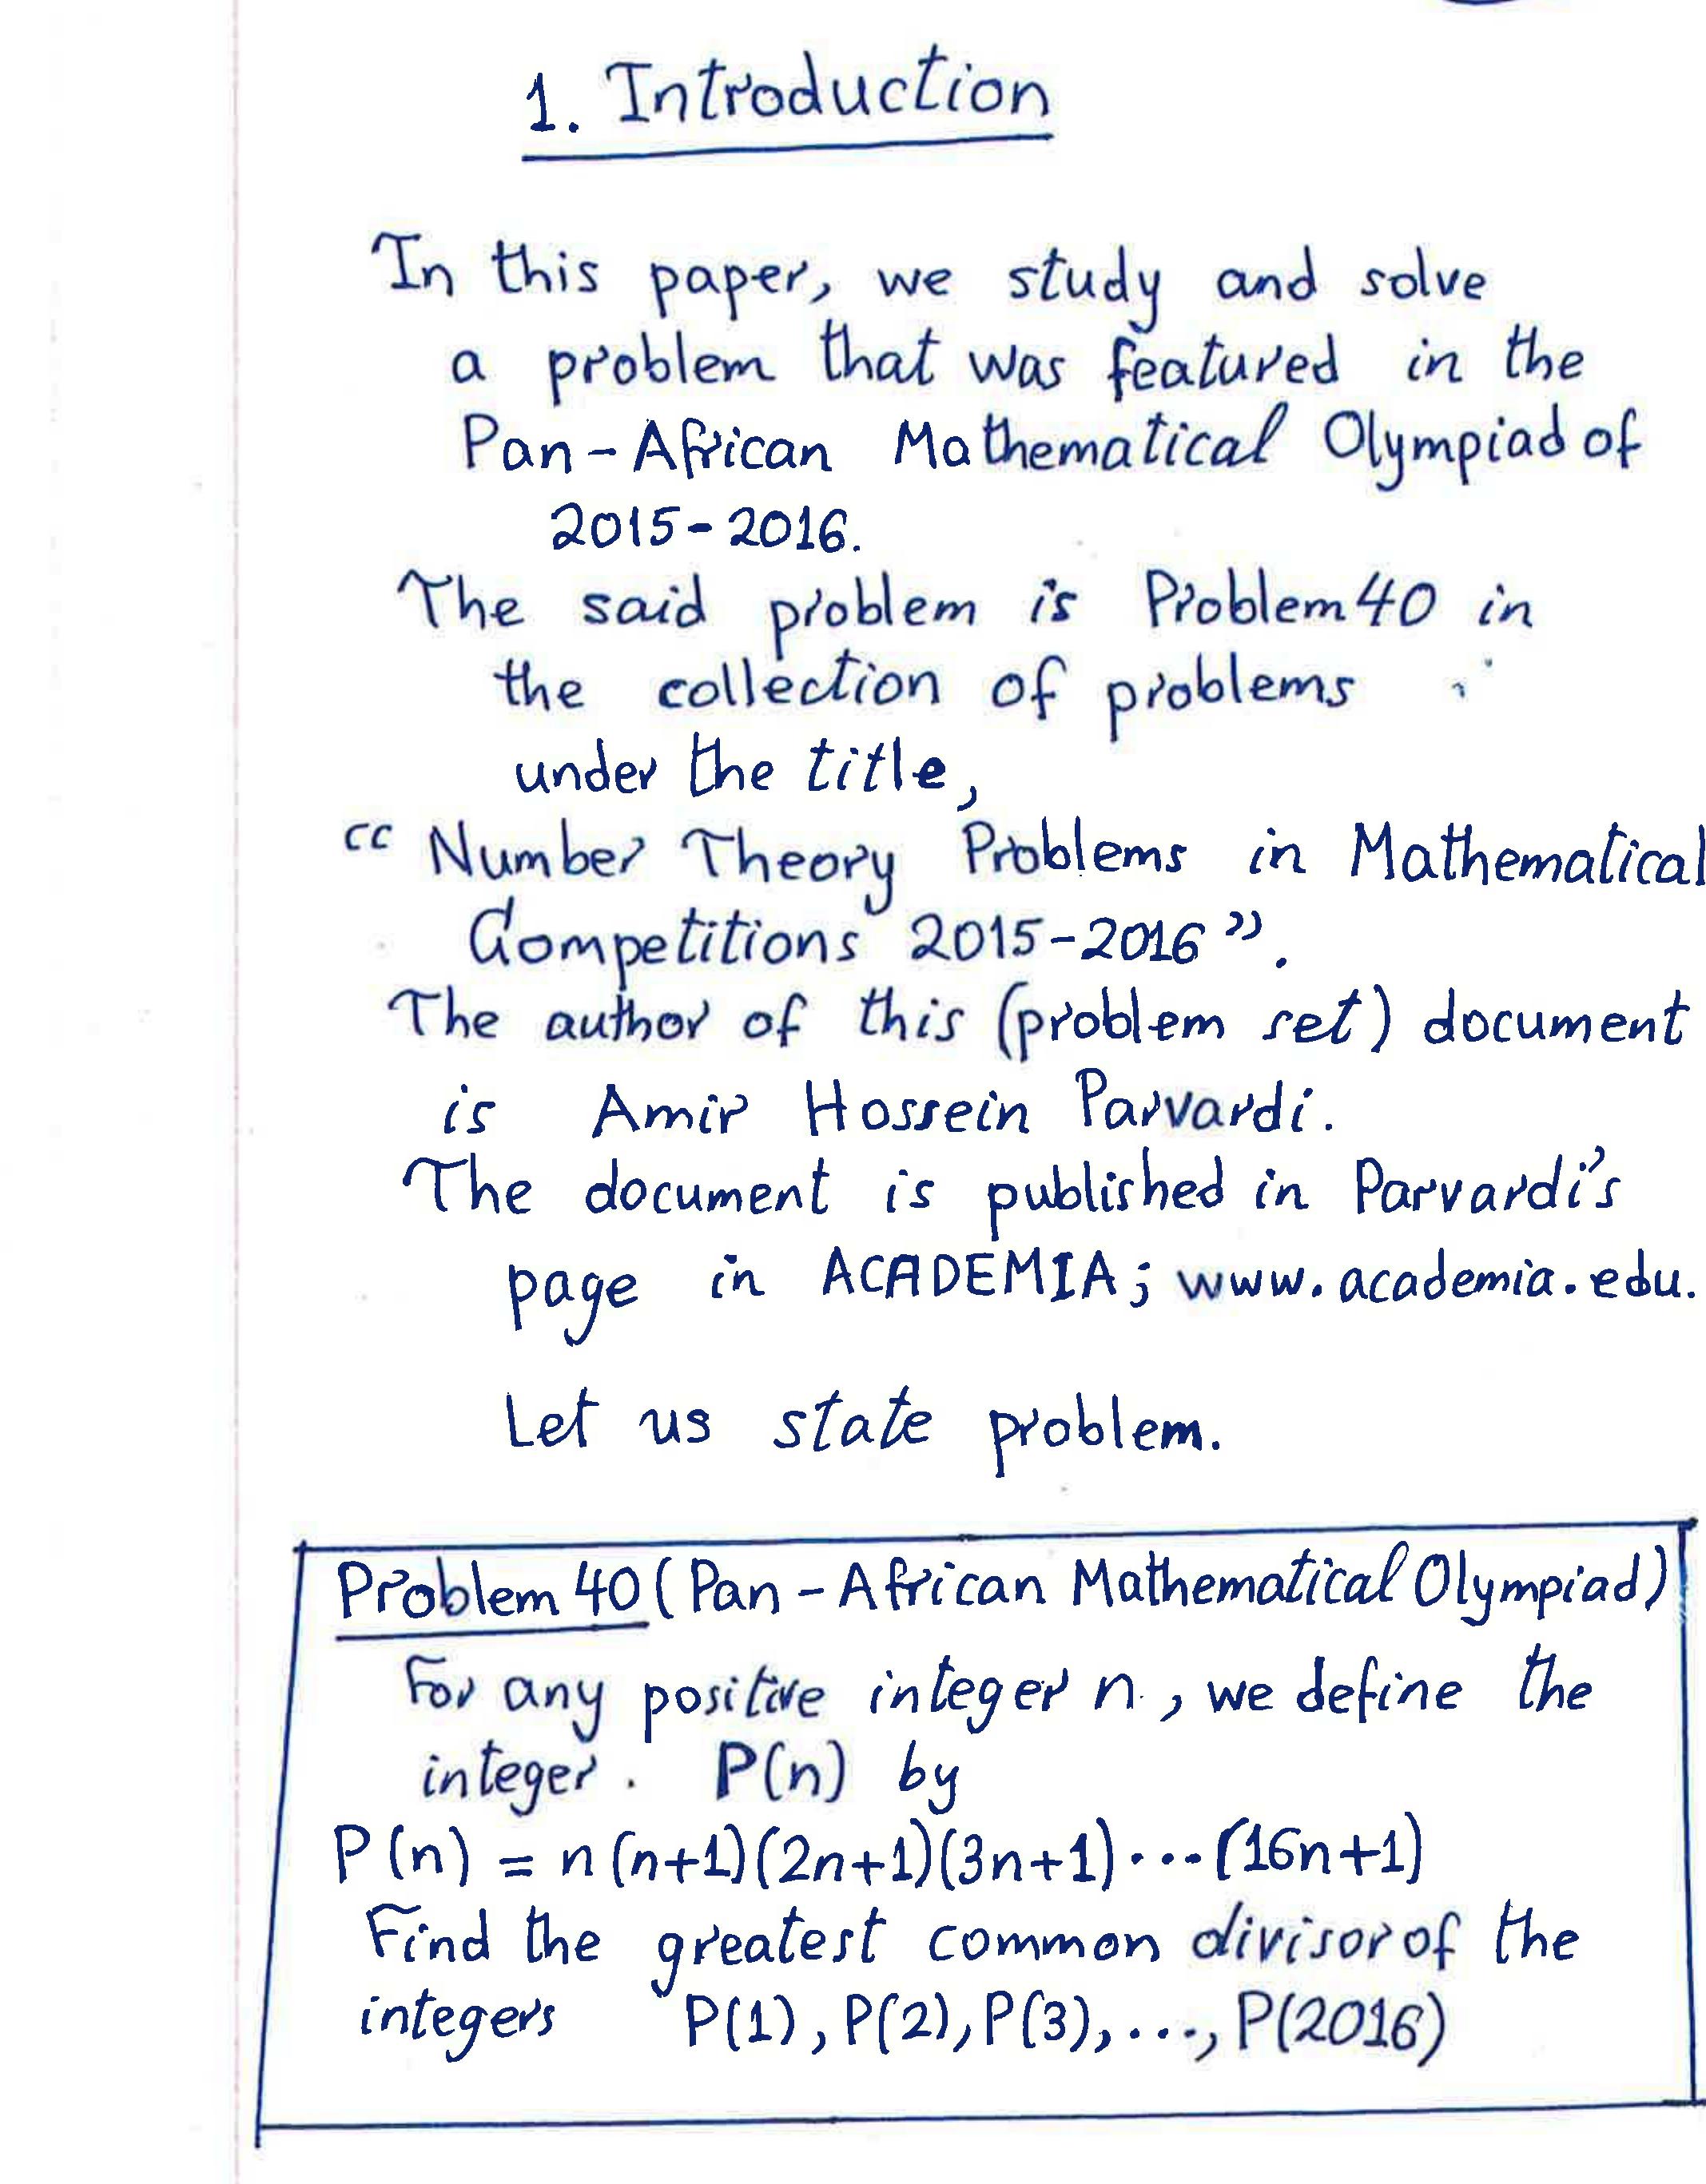 1. Introduction
In this paper, we study and solve
a problem that was featured in the
Pan-African Mathematical Olympiad of
2015-2016.
The said problem is Problem 40 in
the collection of problems
under the title,
“Number Theory Problems in Mathematical
Competitions 2015-2016”.
The author of this (problem set) document
is Amir Hossein Parvardi.
The document is published in Parvardi's
page in ACADEMIA; www.academia.edu.
Let us state problem.
Problem 40 (Pan-African Mathematical Olympiad)
For any positive integer n, we define the
integer. P(n) by
P(n) = n(n+1)(2n+1)(3n+1)...(16n+1)
Find the greatest common divisor of the
integers P(1), P(2), P(3), ..., P(2016)